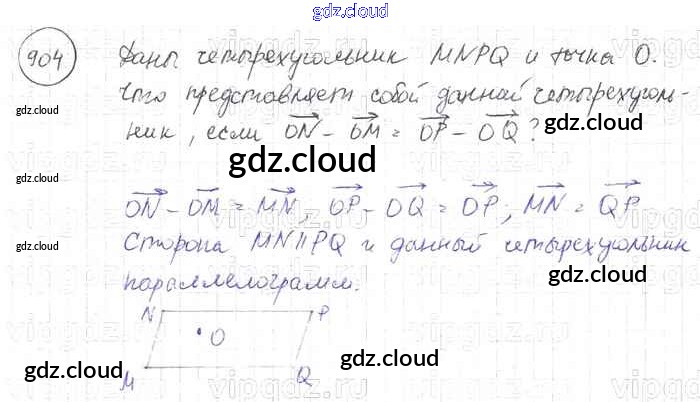 gdz.cloud
904 Даны четырехугольник MNPQ и точка O.
Что представляет собой данной четырехуголь-
ник, если ON - OM = OP - OQ?
gdz.cloud
gdz.cloud
gdz.cloud
gdz.cloud
gdz.cloud
ON - OM = MN, OP - OQ = OP; MN = QP
Сторона MN || PQ и данный четырехугольник
параллелограмм.
gdz.cloud
gdz.cloud
N P
O
M Q
gdz.cloud
gdz.cloud
gdz.cloud
vipgdz.ru